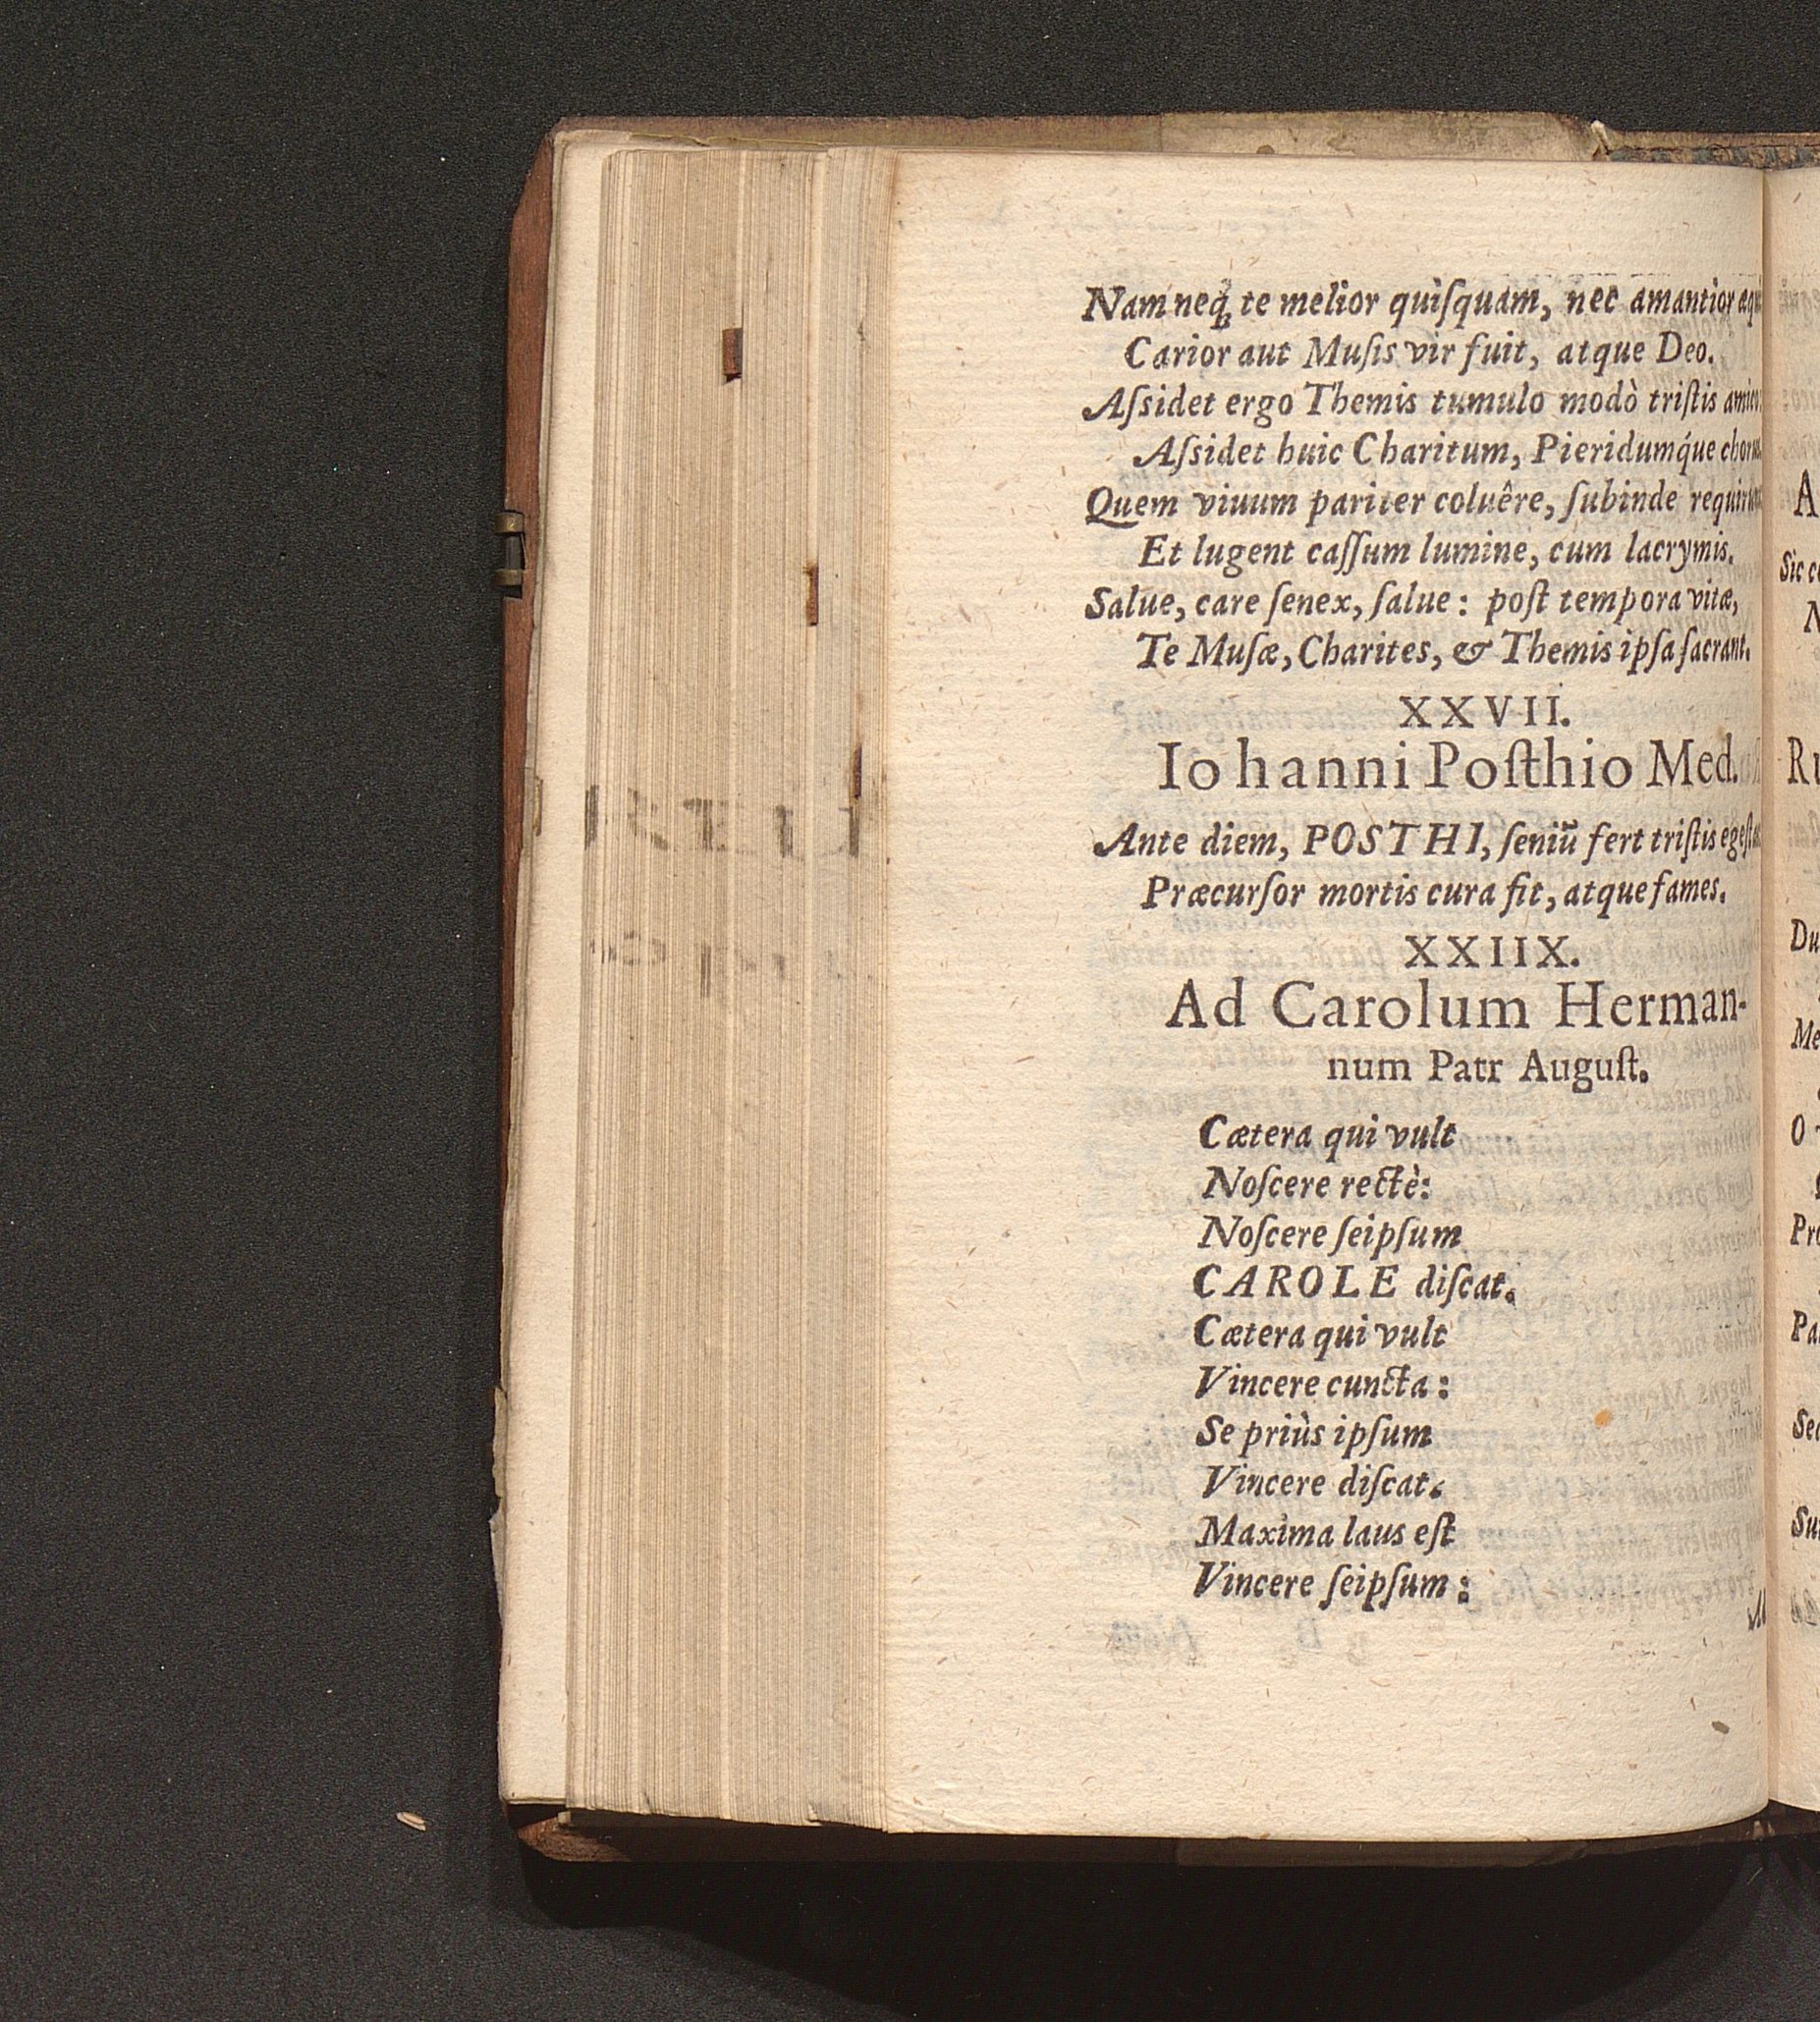 Nam neq́; te melior quiſquam, nec amantior
Carior aut Muſis vir fuit, atque Deo.
Aſsidet ergo Themis tumulo modò triſtis
Aſsidet huic Charitum, Pieridumq́ue
Quem viuum pariter coluêre, ſubinde
Et lugent caſſum lumine, cum lacrymis.
Salue, care ſenex, ſalue: poſt tempora vitæ,
Te Muſæ, Charites, & Themis ipſa ſacrant.
XXVII.
Iohanni Poſthio Med.
Ante diem, POSTHI, ſeniū fert triſtis
Præcurſor mortis cura fit, atque fames.
XXIIX.
Ad Carolum Herman-
num Patr Auguſt.
Cætera qui vult
Noſcere rectè:
Noſcere ſeipſum
CAROLE diſcat.
Cætera qui vult
Vincere cuncta:
Se priùs ipſum
Vincere diſcat.
Maxima laus eſt
Vincere ſeipſum: